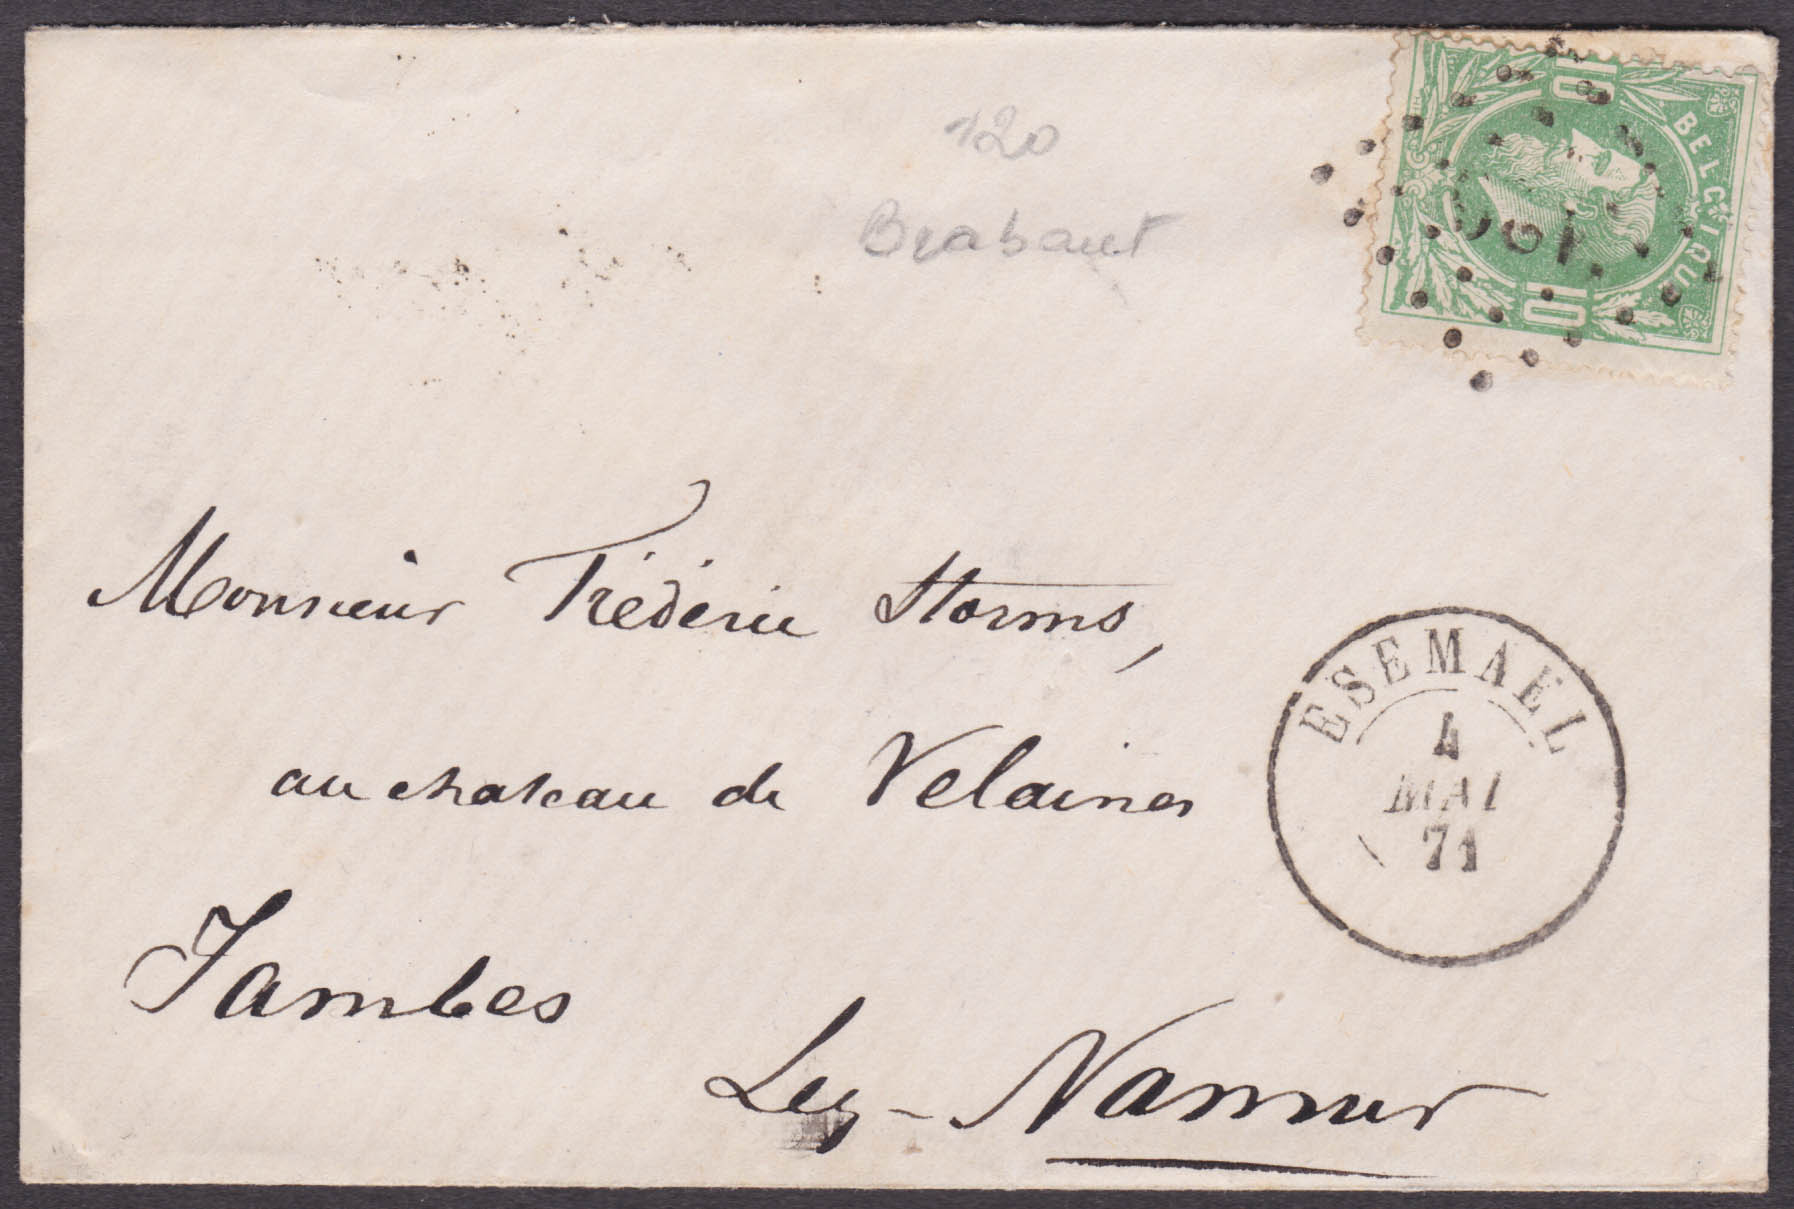 120
Brabant
BELGIQUE
10 10
120
Monsieur Frédéric Storms,
au chateau de Velaines
Jambes
Lez-Namur
ESEMAEL
4
MAI
71